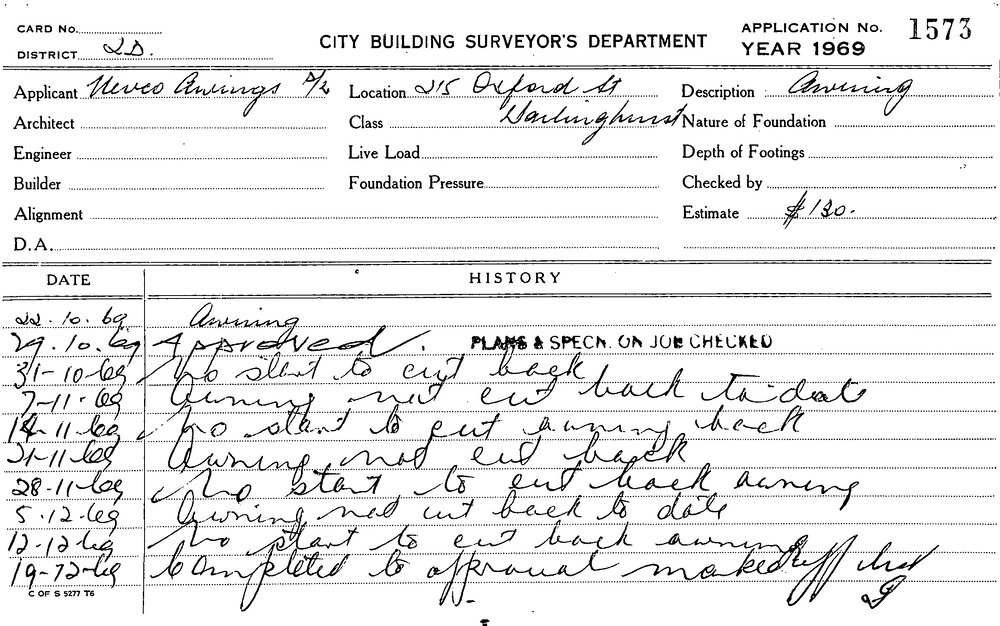 CARD No.
DISTRICT 2D.
CITY BUILDING SURVEYOR'S DEPARTMENT
APPLICATION No. 1573
YEAR 1969
Applicant Nevco Awnings P/L Location 215 Oxford St Description Awning
Architect Class Darlinghurst Nature of Foundation
Engineer Live Load Depth of Footings
Builder Foundation Pressure Checked by
Alignment Estimate $130.
D.A.
DATE HISTORY
22.10.69 Awning
29.10.69 Approved. PLANS & SPECN. ON JOB CHECKED
31-10-69 No start to cut back
7-11-69 Awning not cut back to date
14-11-69 No start to cut awning back
21-11-69 Awning not cut back
28-11-69 No start to cut back awning
5.12-69 Awning not cut back to date
12-12-69 No start to cut back awning
19-12-69 Completed to approval marked off list
C OF S 5277 T6